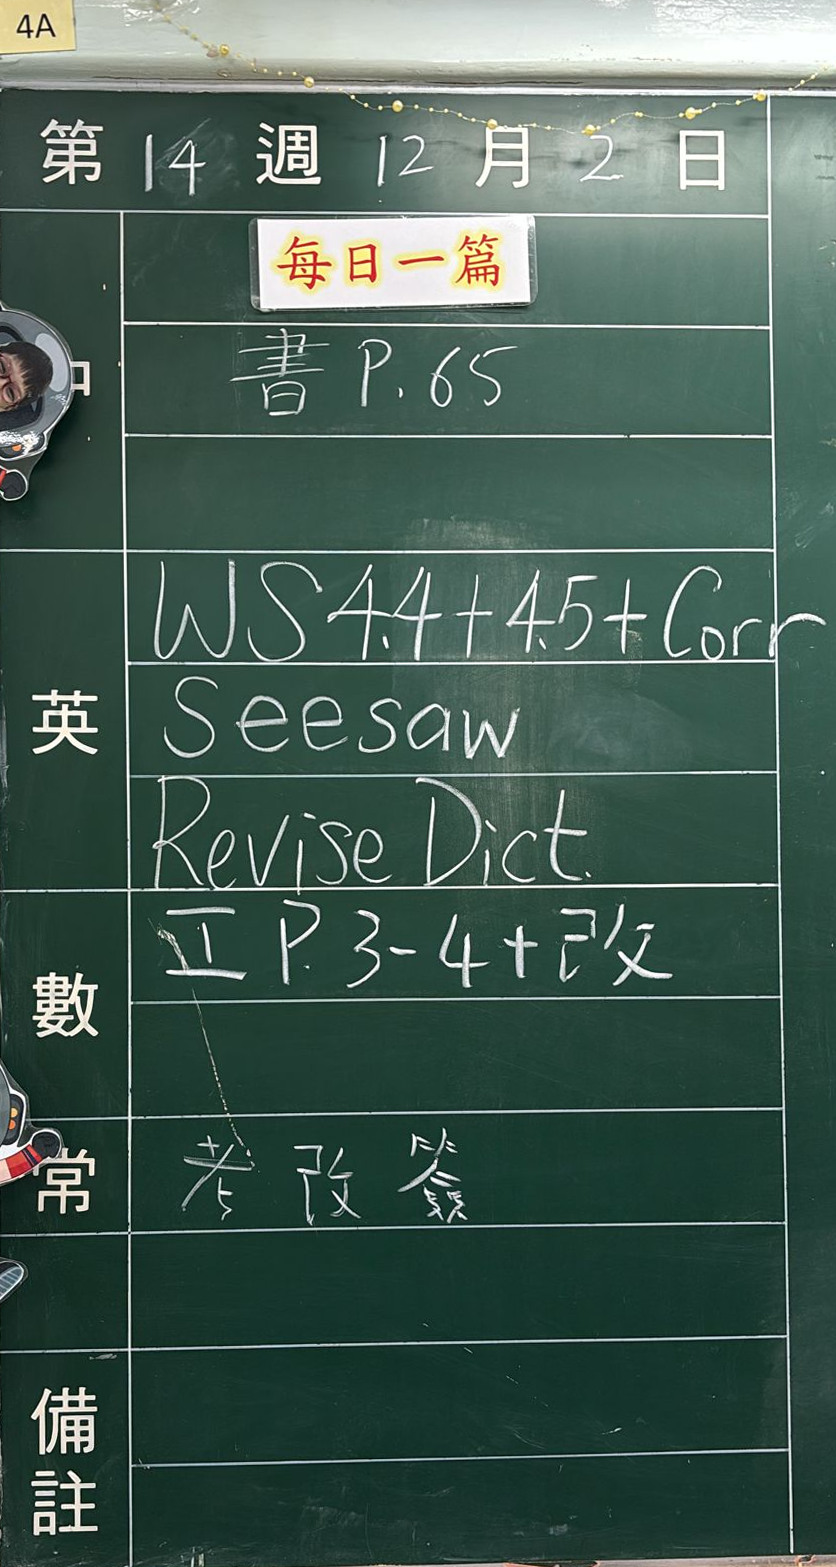 4A
第 14 週 12 月 2 日
每日一篇
中
書 P. 65
英
WS 4.4 + 4.5 + Corr
Seesaw
Revise Dict.
數
工 P. 3-4 + 改
常
考 改 簽
備註